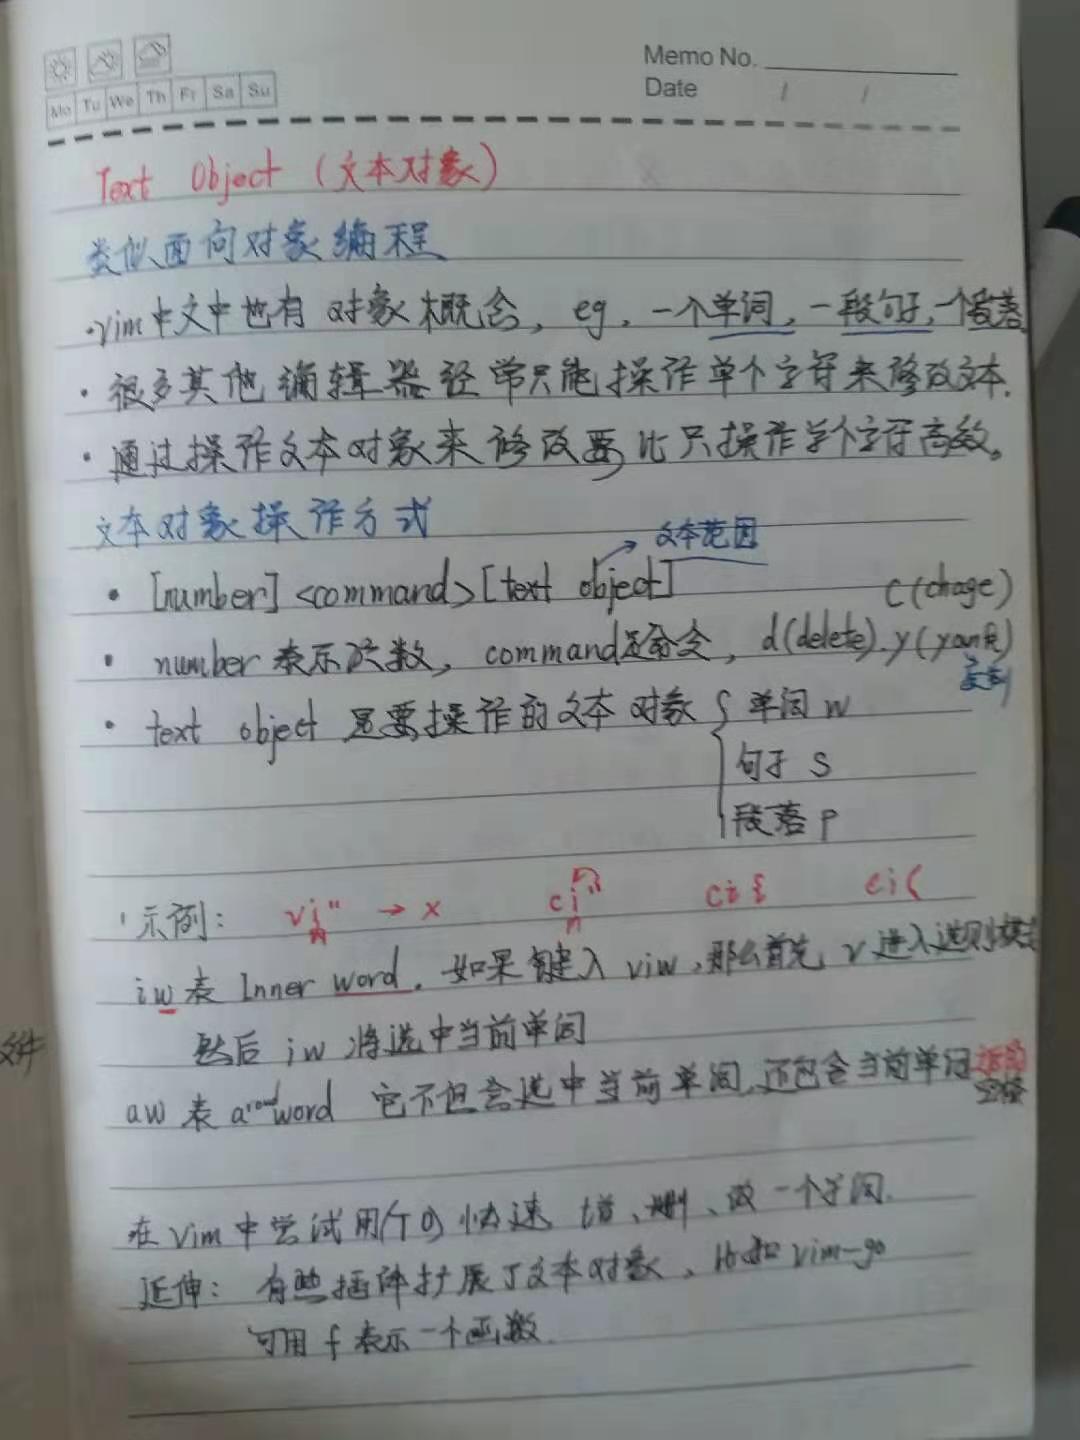 Memo No.
Mo Tu We Th Fr Sa Su
Date / /
Text Object (文本对象)
类似面向对象编程
·vim中文中也有对象概念, eg, 一个单词, 一段句子, 一个段落
·很多其他编辑器经常只能操作单个字符来修改文本.
·通过操作文本对象来修改要比只操作单个字符高效。
文本对象操作方式
文本范围
·[number] <command> [text object]
c(chage)
·number 表示次数, command是命令, d(delete).y(yank)
复制
·text object 是要操作的文本对象 { 单词 w
句子 s
段落 p
示例: vi" → x ci" ci{ ci(
iw 表 Inner word. 如果键入 viw, 那么首先 v 进入选则模式
然后 iw 将选中当前单词
文件
aw 表 around word 它不但会选中当前单词,还包含当前单词
空格
在 vim 中尝试用 快速 增、删、改 一个单词.
延伸: 有些插件扩展了文本对象, 比如 vim-go
可用 f 表示一个函数.